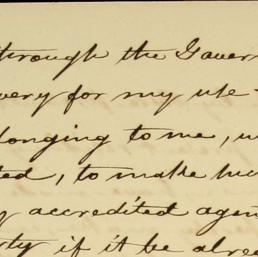 through the Gover
very for my use
longing to me, w
ted, to make
accredited agen
rty if it be alrea